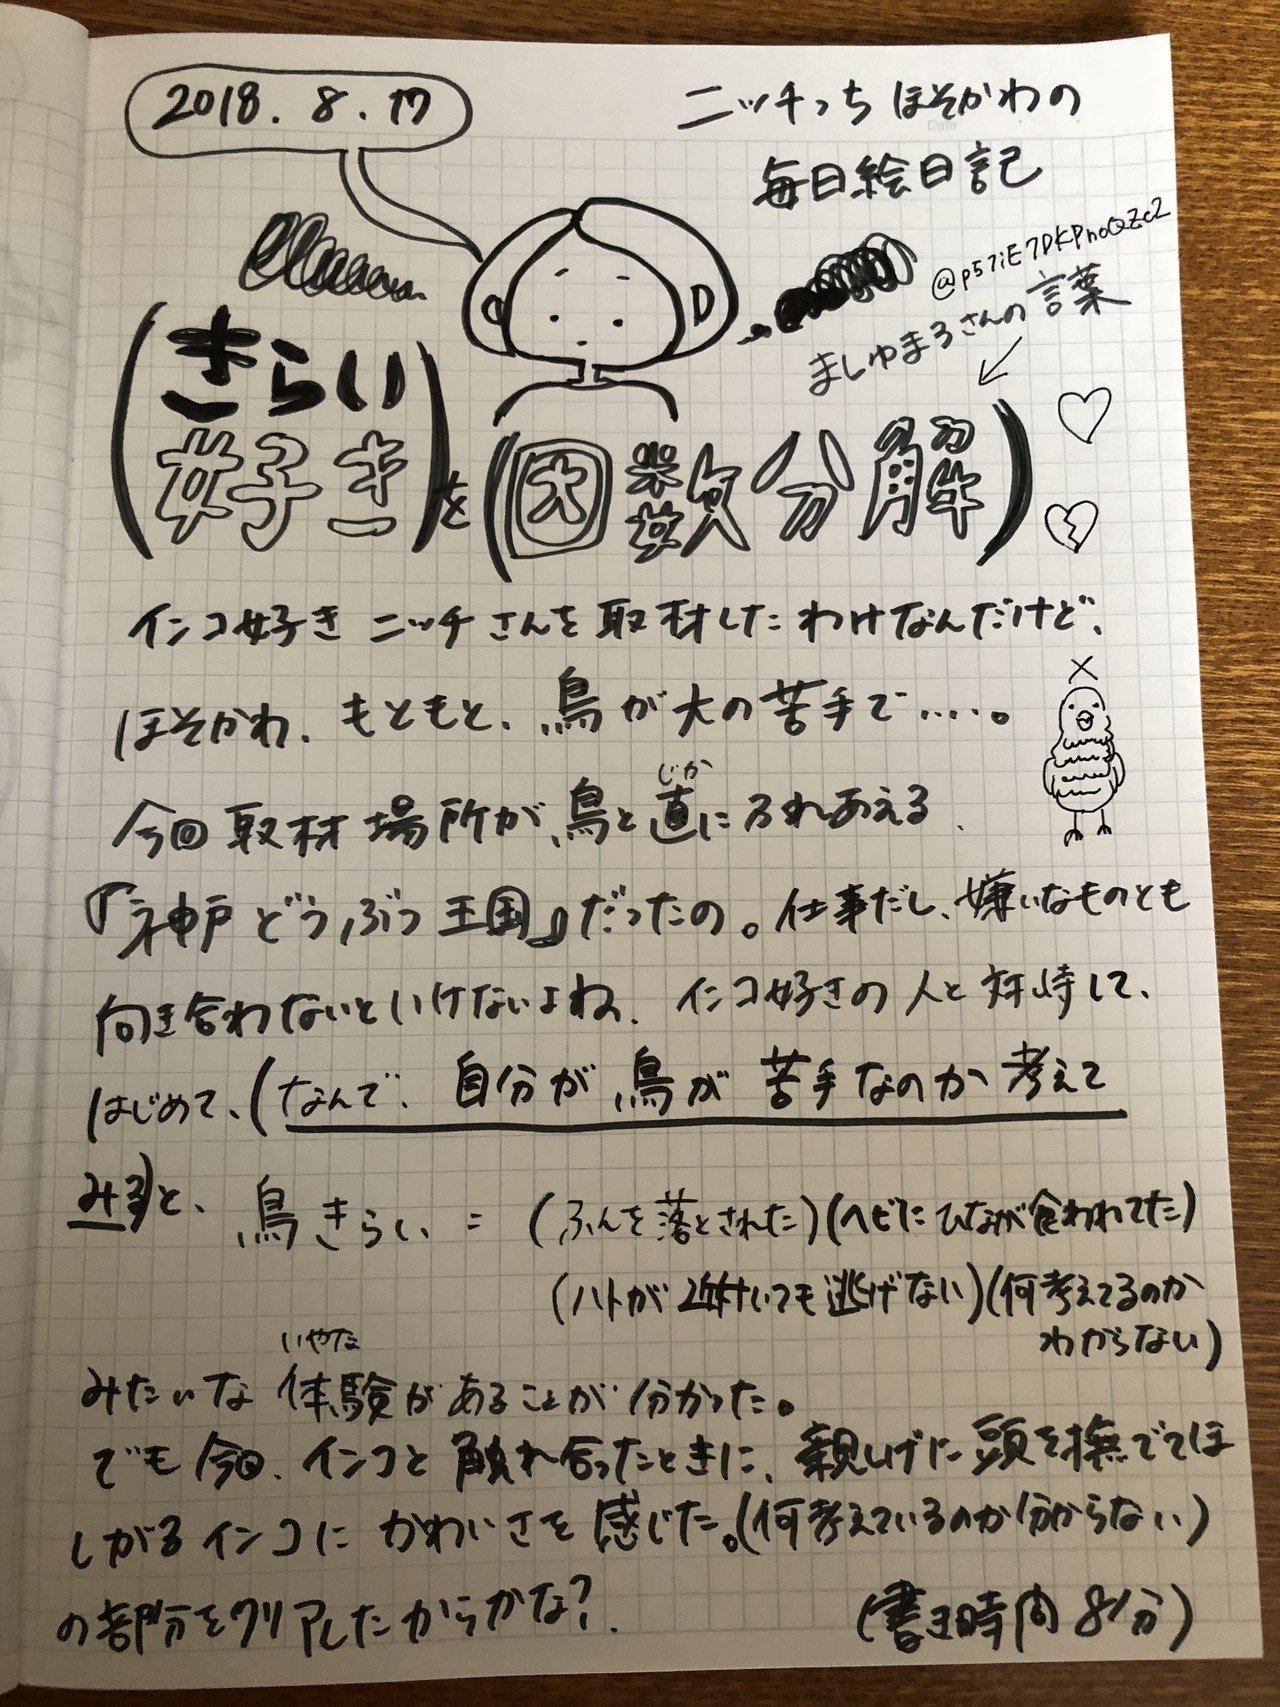 2018.8.17
ニッチっち ほそかわの
毎日絵日記
@p57iE7DKPnoQZc2
ましゅまろさんの言葉
(きらい
好き)を(因数分解)
インコ好き ニッチさんを取材したわけなんだけど、
ほそかわ、もともと、鳥が大の苦手で….。
じか
今回取材場所が、鳥と直にふれあえる、
『神戸どうぶつ王国』だったの。仕事だし、嫌いなものとも
向き合わないといけないよね、インコ好きの人と対峙して、
はじめて、(なんで、自分が鳥が苦手なのか考えて
みる)と、鳥きらい=(ふんを落とされた)(ヘビにひなが食われてた)
(ハトが近付いても逃げない)(何考えてるのか
わからない)
いやな
みたいな体験があることが分かった。
でも今回、インコと触れ合ったときに、親しげに頭を撫でてほ
しがるインコにかわいさを感じた。(何考えているのか分からない)
の部分をクリアしたからかな?
(書き時間 8分)